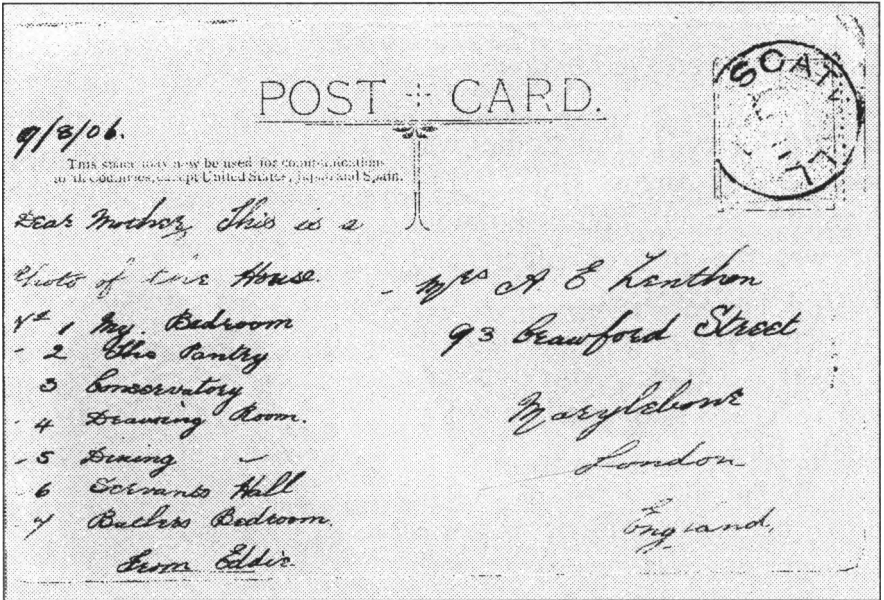 POST CARD.
9/8/06.
This space may now be used for communications
to all countries, except United States, Japan and Spain.
SCAT LL
Dear Mother, This is a
Photo of the House.
1 My. Bedroom
- 2 The Pantry
3 Conservatory
- 4 Drawing Room.
- 5 Dining "
6 Servants Hall
7 Butlers Bedroom.
From Eddie
Mrs A E Lenthon
93 Crawford Street
Marylebone
London
England,